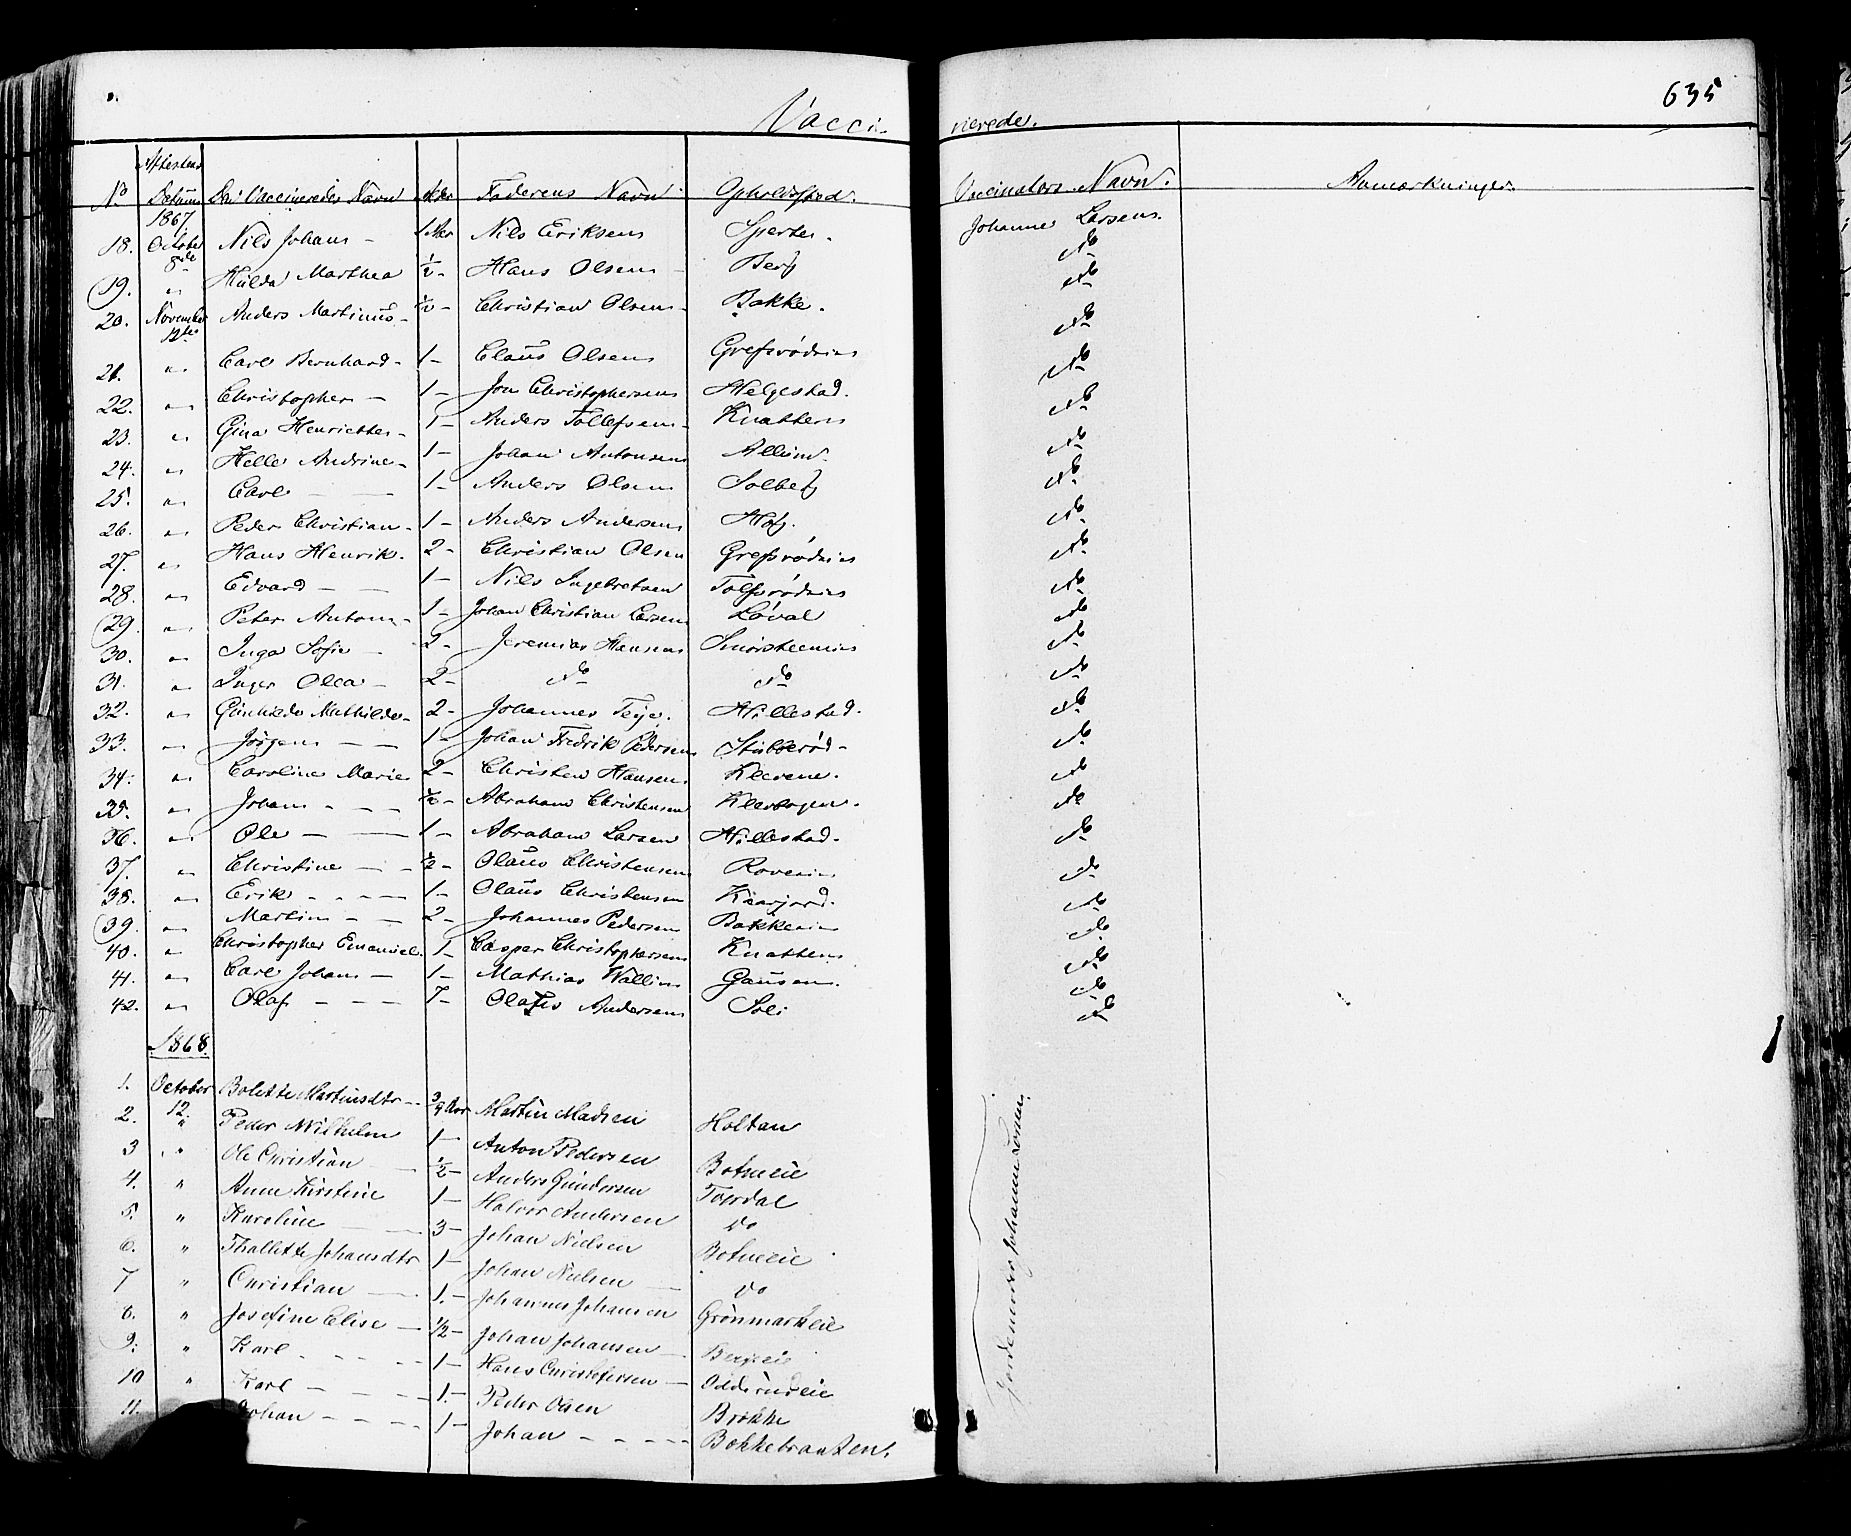 635
Vaccinerede.
No Attestens Datum Den Vaccineredes Navn Alder Faderens Navn Opholdssted. Vaccinators Navn. Anmærkninger.
1867
18. October 8de Nils Johan - 1 Aar Nils Eriksen Johanne Larsen.
19. " Hulda Marthea ½ - Hans Olsen - Berg do
20. November 12te Anders Martinus - ½ - Christian Olsen - Bakke. do
21. " Carl Bernhard - 1 - Claus Olsen do
22. " Christopher - 1 - Jon Christophersen Helgestad. do
23. " Gina Henriette - 1 - Anders Tollefsen - Knatten do
24. " Helle Andrine - 1 - Johan Antonsen do
25. " Carl - - 1 - Anders Olsen Solberg do
26. " Peder Christian - 1 - Anders Andersen do
27. " Hans Henrik. 2 - Christian Olsen do
28. " Edvard - - 1 - Nils Ingebretsen do
29. " Peter Anton - 1 - Johan Christian Larsen Løval do
30. " Inga Sofie - 2 - Jeremias Hansen do
31. " Inger Olea - 2 - do do do
32. " Gunhilde Mathilde - 2 - Johannes Teje. Hillestad. do
33. " Jørgen - - 1 - Johan Fredrik Pedersen Stubberød - do
34. " Caroline Marie 2 - Christen Hansen Klevene. do
35. " Johan - - - ½ - Abraham Christensen do
36. " Ole - - 1 - Abraham Larsen Hillestad. do
37. " Christine - - ½ - Olaus Christensen do
38. " Erik - - - - 1 - Olaus Christensen do
39. " Martin - - 2 - Johannes Pedersen do
40. " Christopher Emanuel 1 - Casper Christophersen Knatten do
41. " Carl Johan - 1 - Mathias Wallin do
42. " Olaf - - - 7 - Andersen Soli do
1868.
1. October 12. Bolette Martinsdtr - ¾ Aar Martin Madsen Holtan
2. " Peder Wilhelm 1 - Anton Pedersen Botneeie
3 " Ole Christian - ½ - Anders Gundersen Topdal
4. " Anne Kirstine 1 - Halvor Andersen do
5. " Karoline 3 - Johan Nielsen Botneeie
6. " Thallette Johansdtr 1 - Johan Nielsen do
7 " Christian 1. - Johannes Johansen Grønmarkeie
8. " Josefine Elise - ½ - Johan Johansen - Bergeie
9. " Karl - - - - 1 - Hans Christofersen - Oddrundeie
10 " Karl - - - - 1. - Peder Olsen Brokke
11. Johan - - - - 1 - Johan - - - - Bokkebrantzen.
Jordemoder Johanne Larsen.